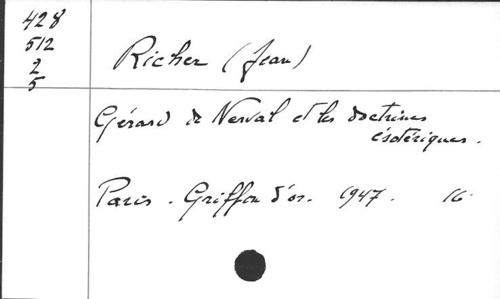 428
512
2
5
Richer (Jean)
Gérard de Nerval et les doctrines
ésotériques.
Paris. Griffon d'or. 1947. 16